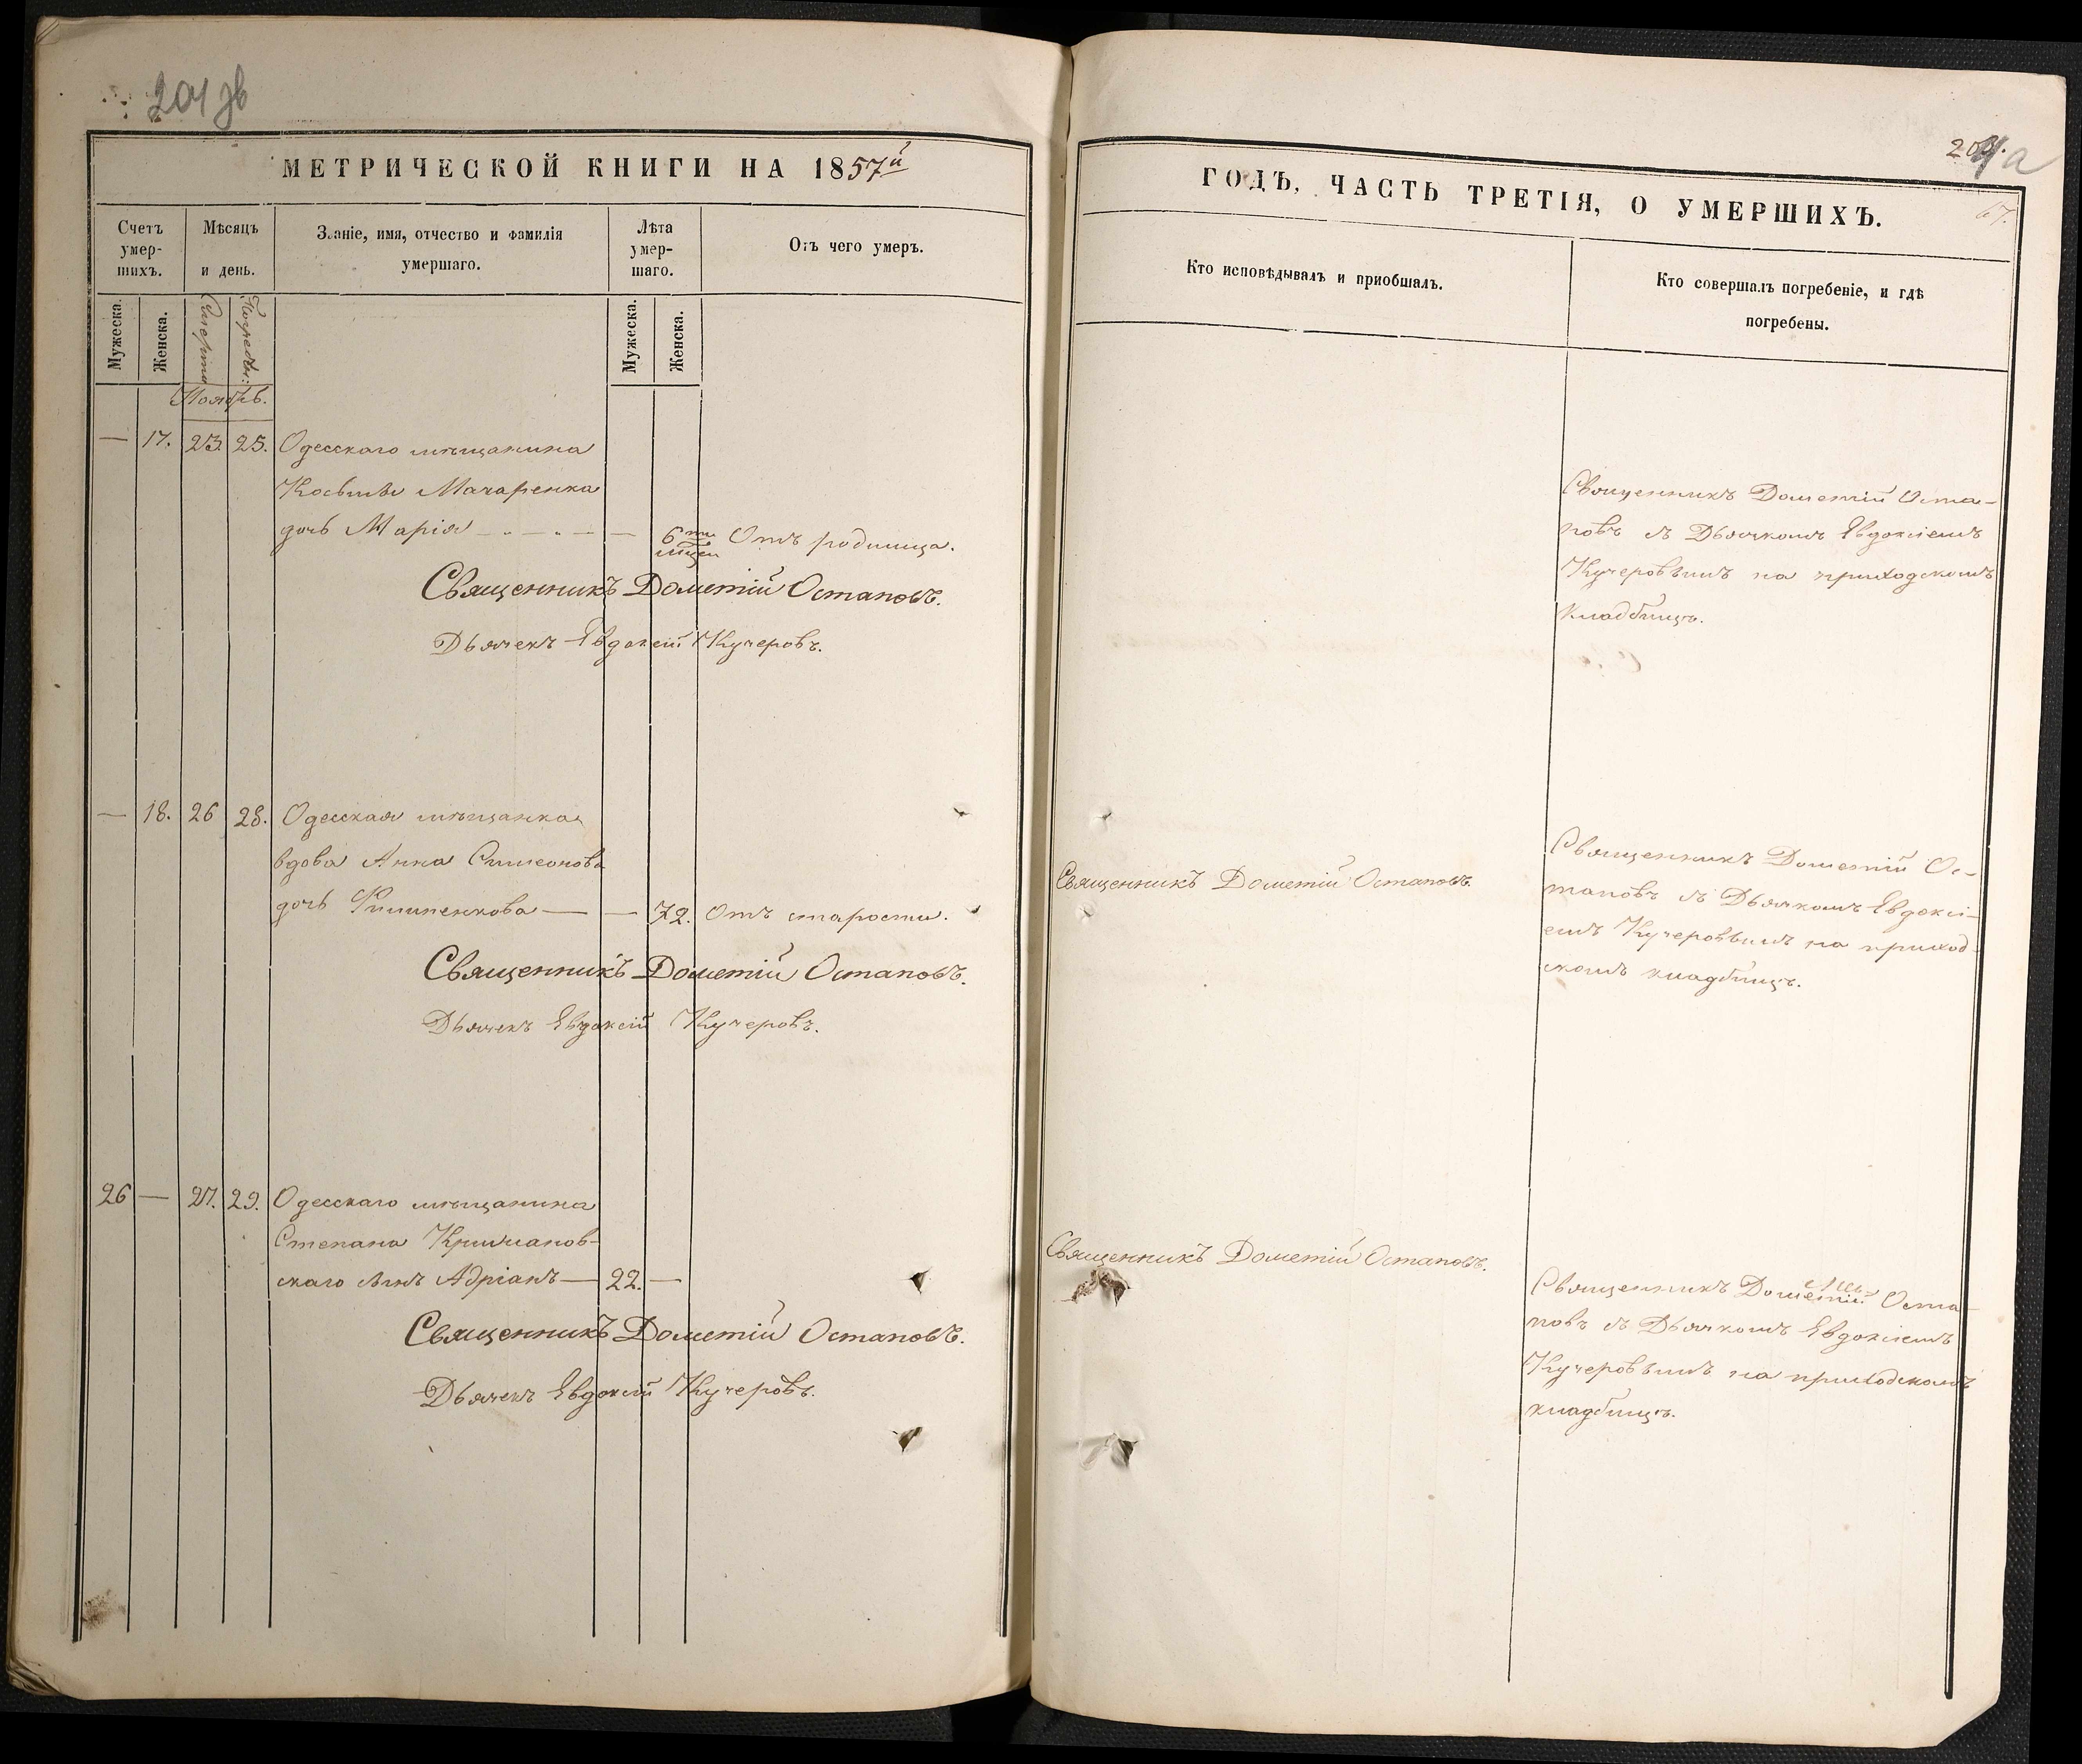 201 зв
МЕТРИЧЕСКОЙ КНИГИ НА 1857й
Счетъ умер-шихъ.
Мѣсяцъ и день.
Званіе, имя, отчество и фамилія умершаго.
Лѣта умер-шаго.
Отъ чего умеръ.
Мужеска.
Женска.
Смерти
Погребен:
Мужеска.
Женска.
Ноябрь.
— 17. 23 25. Одесскаго мѣщанина
Косьмы Макаренка
дочь Марія — — 6ти мѣсяц Отъ родимца.
Священникъ Дометій Остаповъ.
Дьячекъ Евдокій Кучеровъ.
— 18. 26 28. Одесская мѣщанка
вдова Анна Симеонова
дочь Филипенкова — — 72. Отъ старости.
Священникъ Дометій Остаповъ.
Дьячекъ Евдокій Кучеровъ.
26 — 27. 29. Одесскаго мѣщанина
Степана Кришанов-
скаго сынъ Адріанъ — 22. —
Священникъ Дометій Остаповъ.
Дьячекъ Евдокій Кучеровъ.
67.
ГОДЪ, ЧАСТЬ ТРЕТІЯ, О УМЕРШИХЪ.
Кто исповѣдывалъ и приобщалъ.
Кто совершалъ погребеніе, и гдѣ
погребены.
Священникъ Дометій Оста-
повъ съ Дьячкомъ Евдокіемъ
Кучеровымъ на приходскомъ
кладбищѣ.
Священникъ Дометій Остаповъ.
Священникъ Дометій Ос-
таповъ съ Дьячкомъ Евдокі-
емъ Кучеровымъ на приход-
скомъ кладбищѣ.
Священникъ Дометій Остаповъ.
Священникъ Дометій Оста-
повъ съ Дьячкомъ Евдокіемъ
Кучеровымъ на приходскомъ
кладбищѣ.